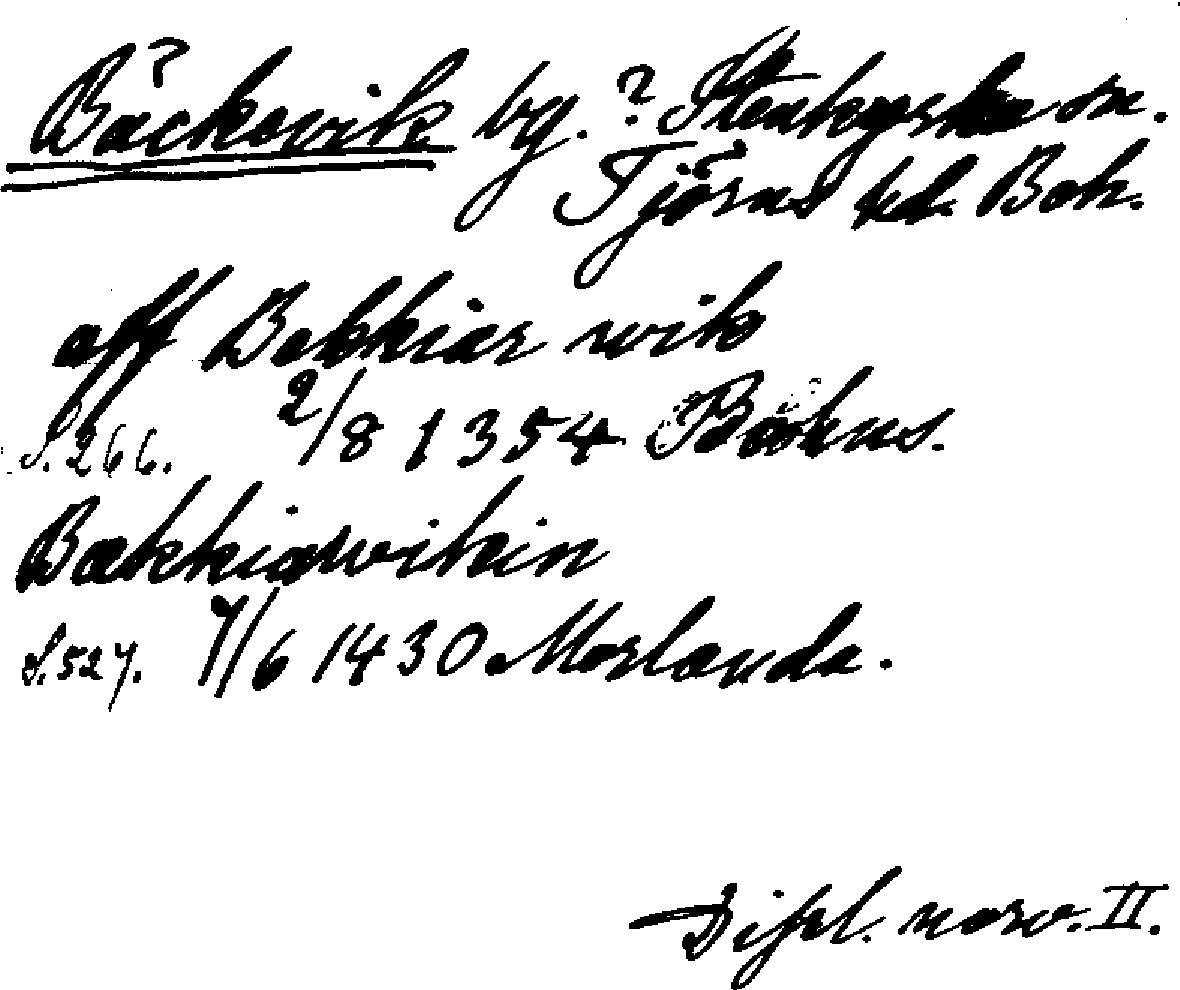 Bäckevik bg. ? Stenkyrka sn.
Tjörns hd. Boh.
aff Bekkiar wik
S. 266. 2/8 1354 Båhus.
Bækkiarvikin
S. 527. 7/6 1430 Morlanda.
Dipl. norv. II.